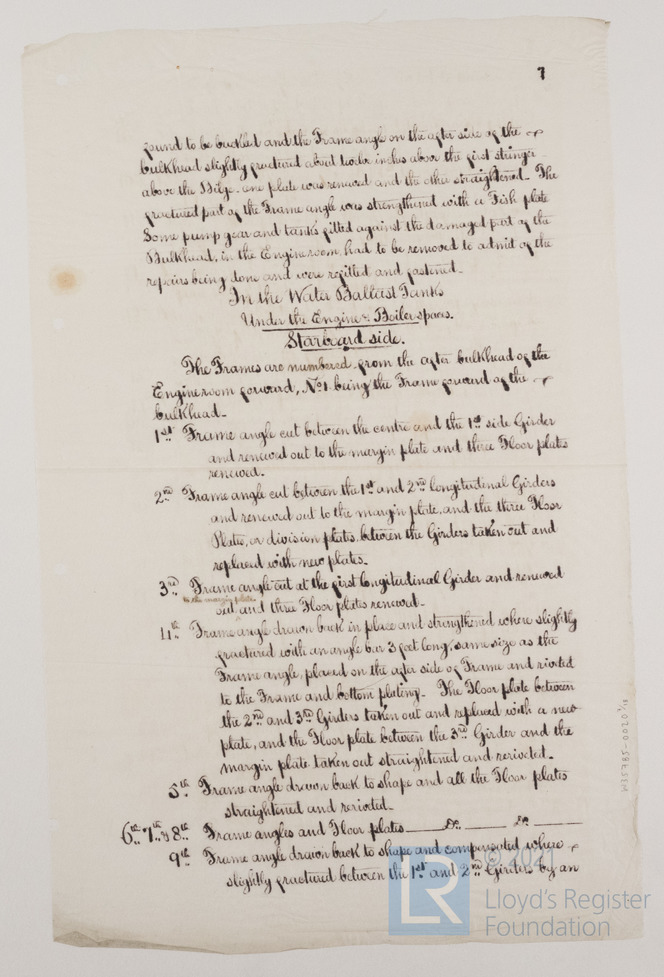 7
found to be buckled and the Frame angle on the after side of the
bulkhead slightly fractured about twelve inches above the first stringer
above the Bilge. one plate was renewed and the other straightened. The
fractured part of the Frame angle was strengthened with a Fish plate
Some pump gear and tanks fitted against the damaged part of the
Bulkhead, in the Engineroom, had to be removed to admit of the
repairs being done and were refitted and fastened.
In the Water Ballast Tanks
Under the Engine & Boiler spaces.
Starboard side.
The Frames are numbered from the after bulkhead of the
Engineroom forward, No 1 being the Frame forward of the
bulkhead.
1st Frame angle cut between the centre and the 1st side Girder
and renewed out to the margin plate and three Floor plates
renewed.
2nd Frame angle cut between the 1st and 2nd longitudinal Girders
and renewed out to the margin plate, and the three Floor
Plates, or division plates, between the Girders taken out and
replaced with new plates.
3rd Frame angle cut at the first longitudinal Girder and renewed
to the margin plate
out and three Floor plates renewed.
4th Frame angle drawn back in place and strengthened where slightly
fractured with an angle bar 3 feet long, same size as the
Frame angle, placed on the after side of Frame and rivited
to the Frame and bottom plating. The Floor plate between
the 2nd and 3rd Girders taken out and replaced with a new
plate, and the Floor plate between the 3rd Girder and the
margin plate taken out straightened and rerivited.
5th Frame angle drawn back to shape and all the Floor plates
straightened and rerivited.
6th 7th & 8th Frame angles and Floor plates Do. Do.
9th Frame angle drawn back to shape and compensated where
slightly fractured between the 1st and 2nd Girders by an
W15785-0020 1/18
© 2021
LR
Lloyd's Register
Foundation